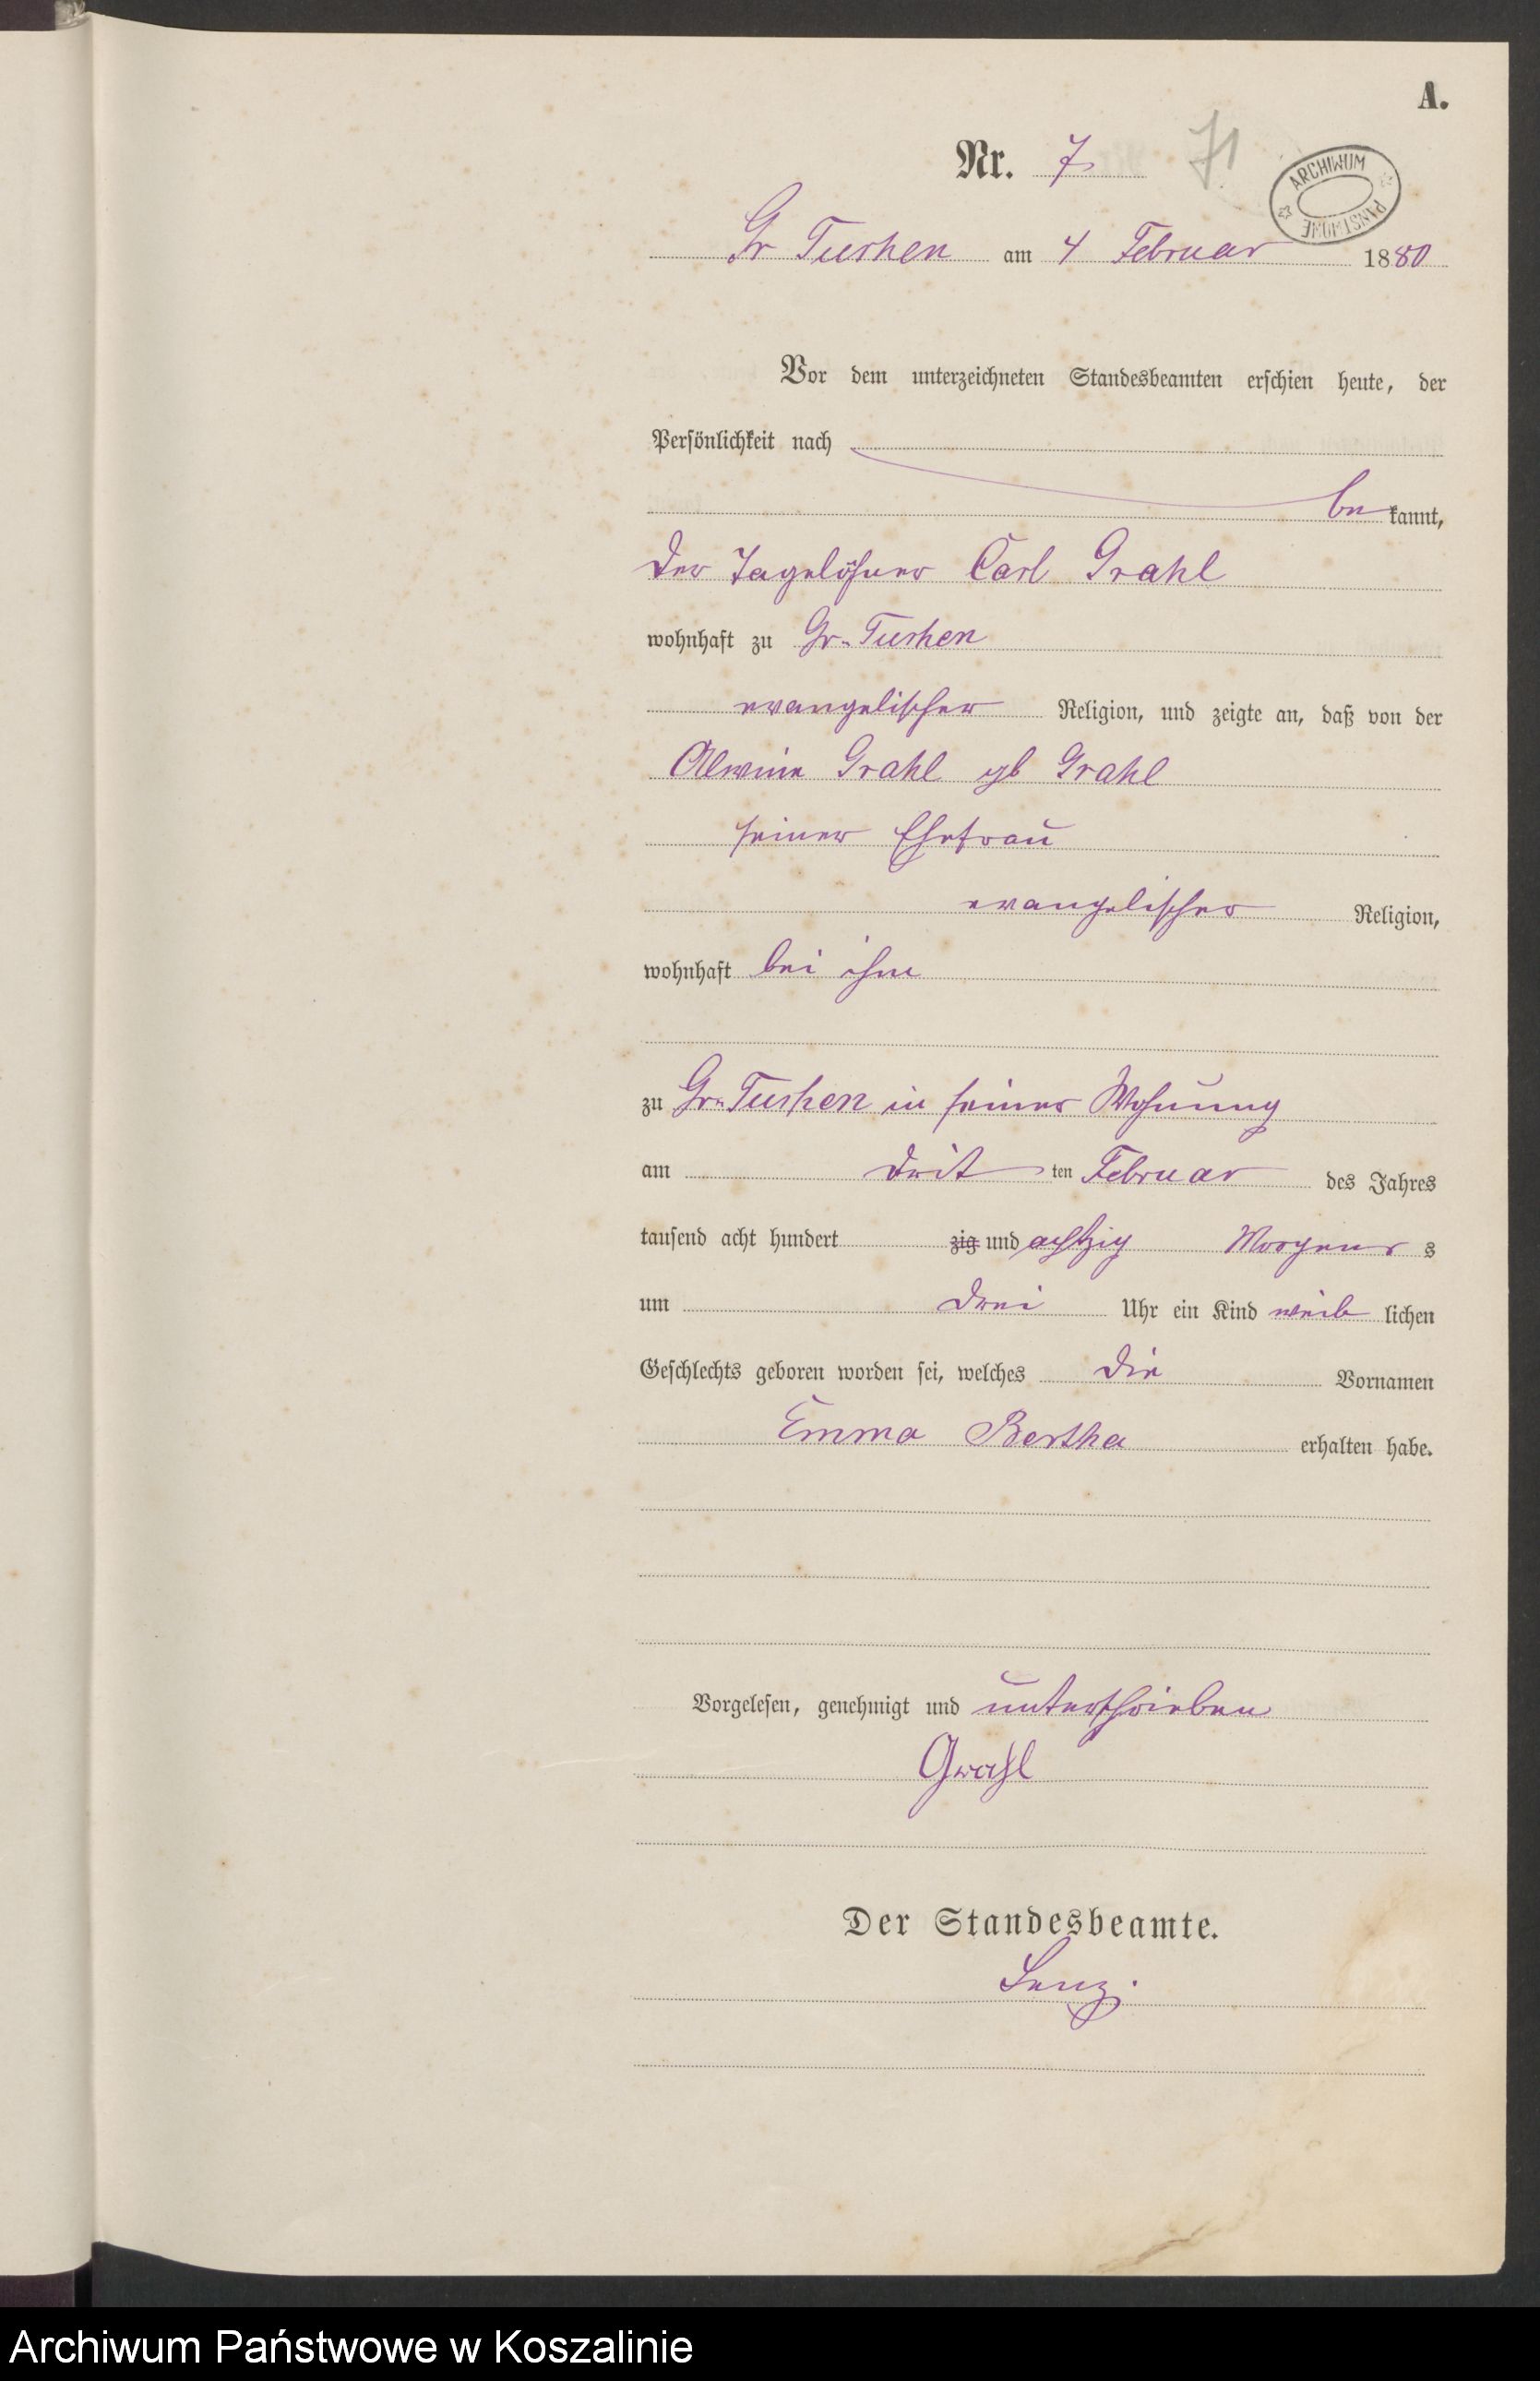 A.
Nr. 7 71
ARCHIWUM PAŃSTWOWE
Gr Tuchen am 4 Februar 1880
Vor dem unterzeichneten Standesbeamten erschien heute, der
Persönlichkeit nach
be kannt,
der Tagelöhner Carl Grahl
wohnhaft zu Gr. Tuchen
evangelischer Religion, und zeigte an, daß von der
Alwine Grahl gb Grahl
seiner Ehefrau
evangelischer Religion,
wohnhaft bei ihm
zu Gr. Tuchen in seiner Wohnung
am drit ten Februar des Jahres
tausend acht hundert zig und achtzig Morgens s
um drei Uhr ein Kind weib lichen
Geschlechts geboren worden sei, welches die Vornamen
Emma Bertha erhalten habe.
Vorgelesen, genehmigt und unterschrieben
Grahl
Der Standesbeamte.
Lenz.
Archiwum Państwowe w Koszalinie